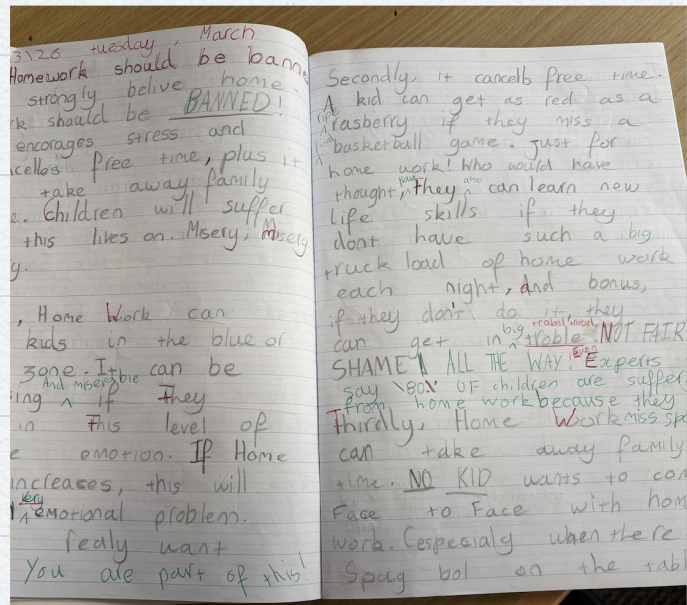 3\26 tuesday, March
Homework should be bann
strongly belive home
rk should be BANNED!
encorages stress and
cells free time, plus it
take away family
e. Children will suffer
this lives on. Misery, Misery
y.
, Home Work can
kids in the blue or
zone. It can be
ing And miserable if They
in This level of
e emotion. If Home
increases, this will
very emotional problem.
realy want
You are part of this!
Secondly, it cancells free time.
A kid can get as red as a
ripe rasberry if they miss a
final basketball game. Just for
home work! Who would have
thought, They also can learn new
life skills if they
dont have such a big
truck load of home work
each night, And bonus,
if they don't do it, they
can get in big troble trabel trobel. NOT FAIR
SHAME ALL THE WAY! Even Experts
say \80\ OF children are suffer
from home work because they
miss spo
Thirdly, Home Work
can take away family
time. NO KID wants to con
Face to Face with hom
work. Cespecialy when there
Spag bol on the tabl